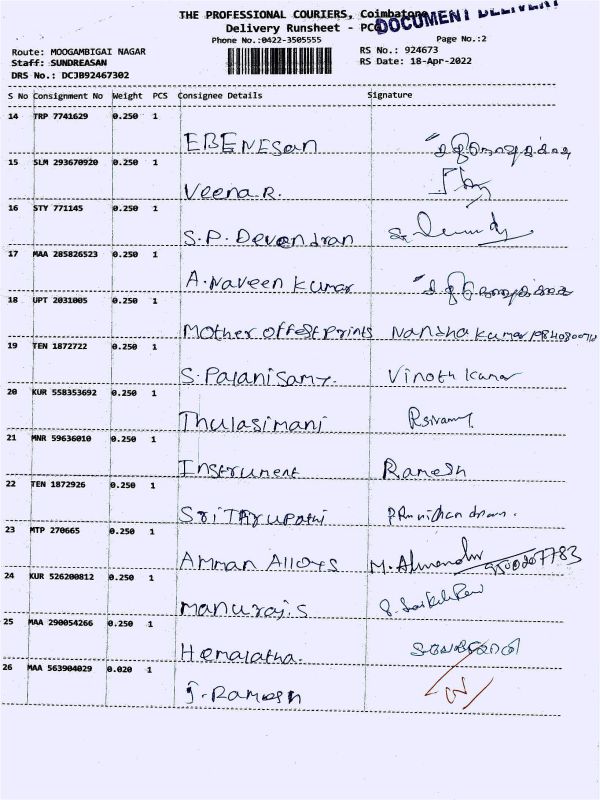 THE PROFESSIONAL COURIERS, Coimbatore
DOCUMENT DELIVERY
Delivery Runsheet - PCO
Phone No.:0422-3505555
Page No.:2
Route: MOOGAMBIGAI NAGAR
RS No.: 924673
Staff: SUNDREASAN
RS Date: 18-Apr-2022
DRS No.: DCJB92467302
S No Consignment No Weight PCS Consignee Details Signature
14 TRP 7741629 0.250 1
EBENESan
15 SLM 293670920 0.250 1
Veena.R.
16 STY 771145 0.250 1
S.P. Devendran
17 MAA 285826523 0.250 1
A.Naveen Kumar
18 UPT 2031005 0.250 1
Mother offest prints Nandha Kumar
19 TEN 1872722 0.250 1
S. Palanisamy. Vinoth Kumar
20 KUR 558353692 0.250 1
Thulasimani
21 MNR 59636010 0.250 1
Instrument Ramesh
22 TEN 1872926 0.250 1
Sri Thirupathi
23 MTP 270665 0.250 1
Amman Alloys
24 KUR 526200812 0.250 1
Manuraj.S
25 MAA 290054266 0.250 1
Hemalatha.
26 MAA 563904029 0.020 1
J. Ramesh